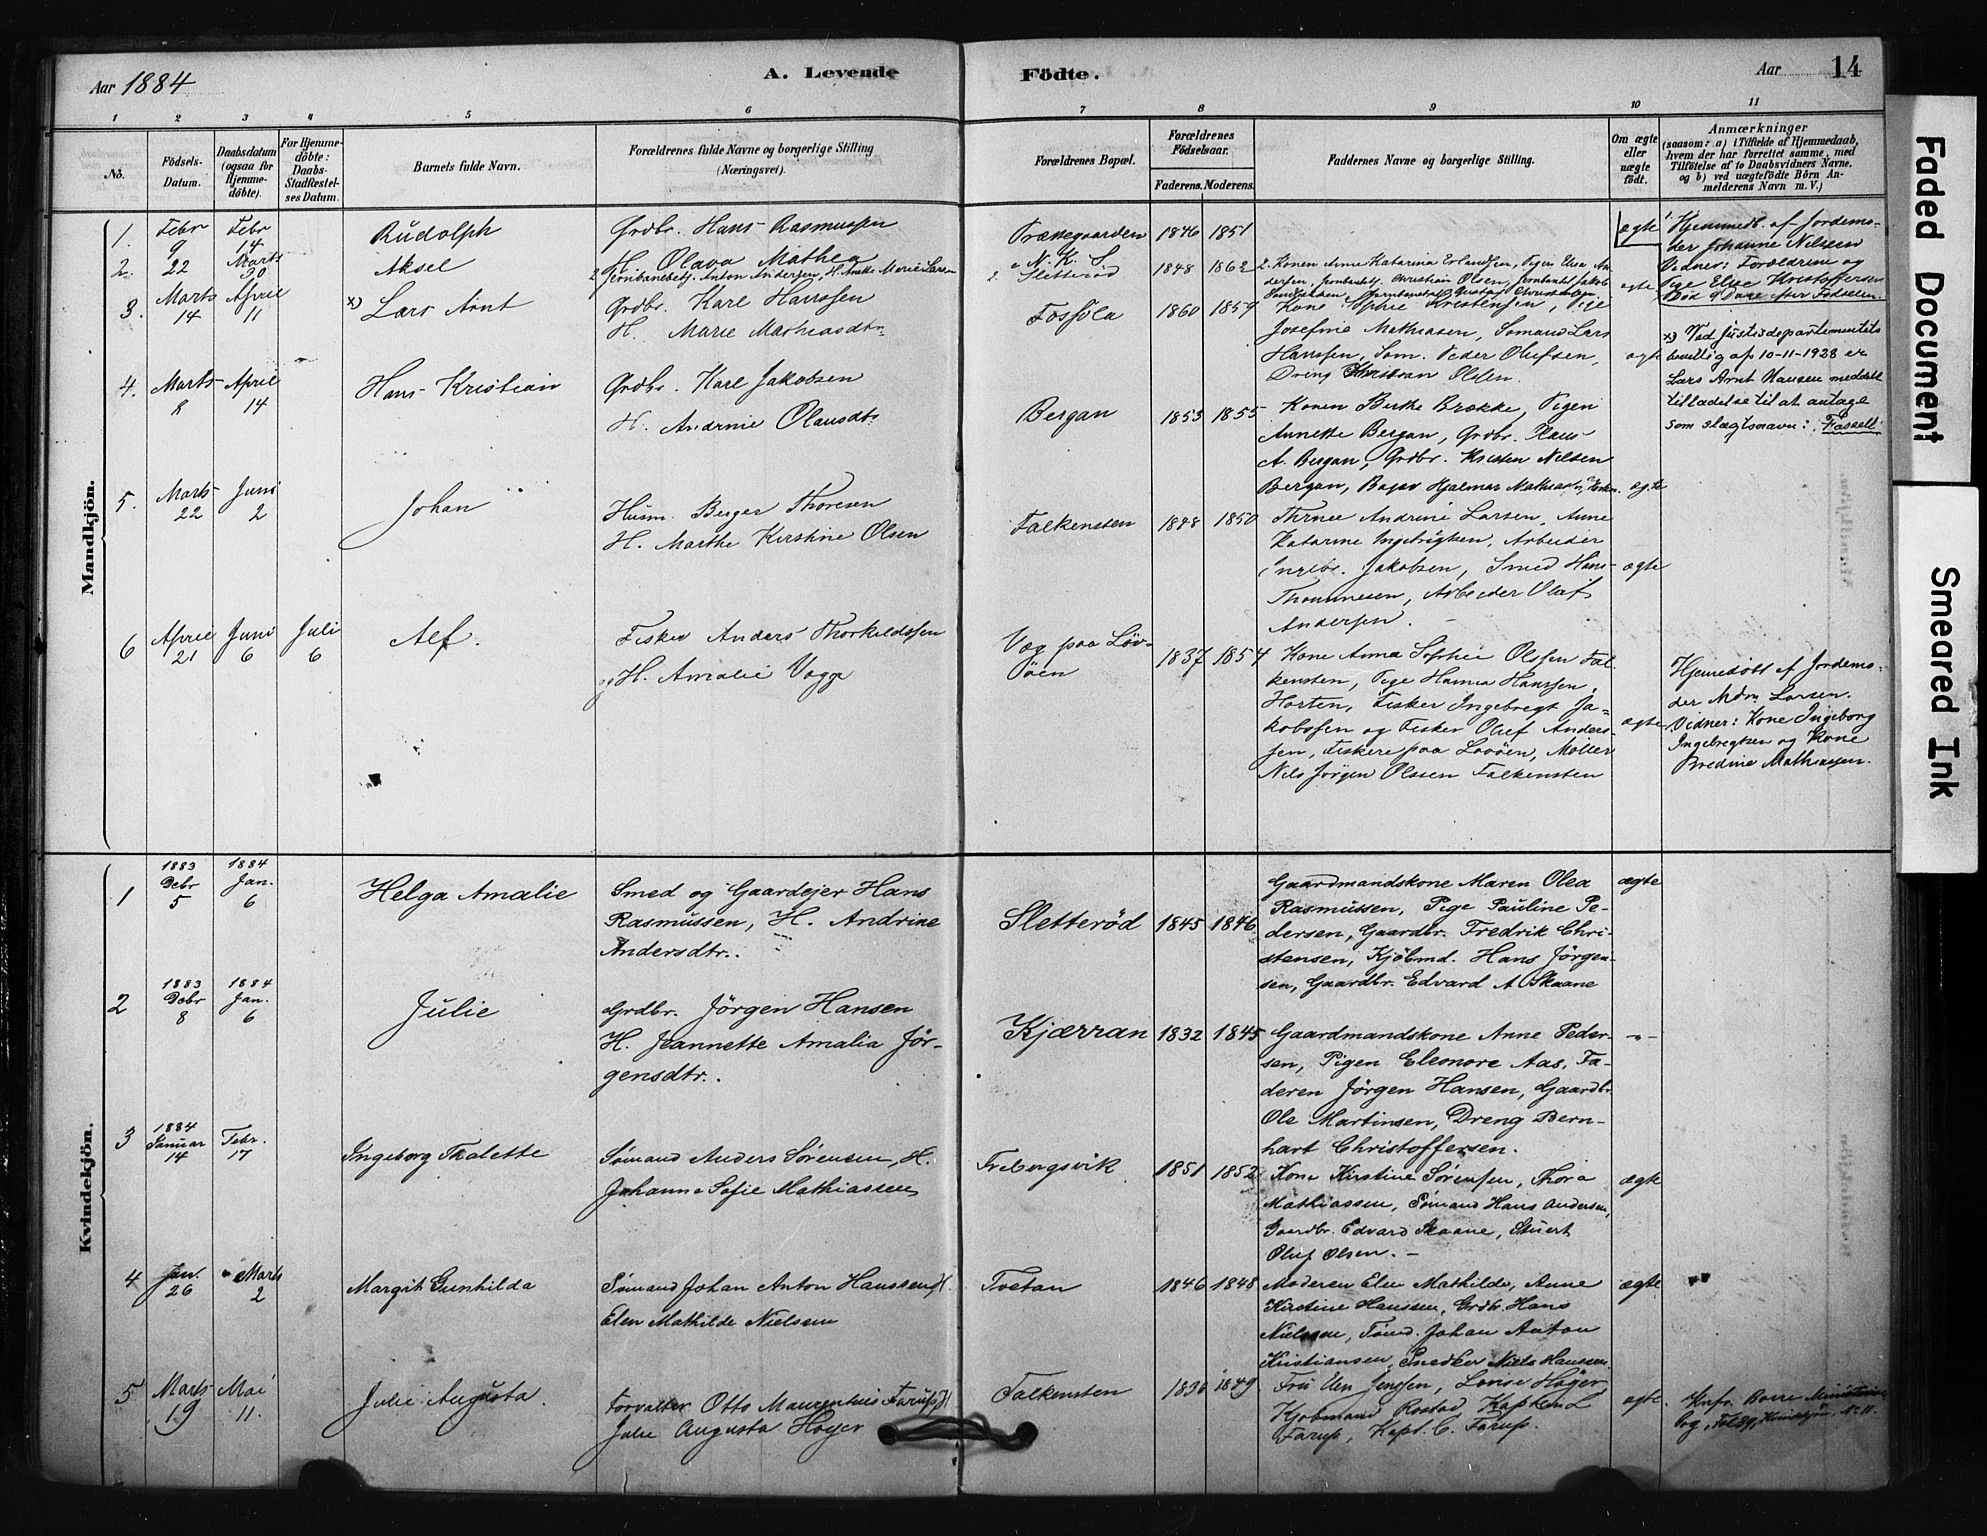 Aar 1884
A. Levende
Födte.
Aar
14
1 2 3 4 5 6 7 8 9 10 11
No.
Födsels-Datum.
Daabsdatum (ogsaa for Hjemmedöbte).
For Hjemmedöbte: Daabs-Stadfæstelses Datum.
Barnets fulde Navn.
Forældrenes fulde Navne og borgerlige Stilling (Næringsvei).
Forældrenes Bopæl.
Forældrenes Födselsaar.
Faderens. Moderens.
Faddernes Navne og borgerlige Stilling.
Om ægte eller uægte födt.
Anmærkninger
(saasom: a) i Tilfælde af Hjemmedaab, hvem der har forrettet samme, med Tilföielse af to Daabsvidners Navne, og b) ved uægtefödte Börn Anmelderens Navn m. V.)
Mandkjön.
1. Febr 9 Febr 14 Rudolph
Grdbr. Hans Rasmussen
H. Olava Mathea
Prættegaarden 1846 1851
ægte
Hjemmedb. af Jordemo-
der Johanne Nilsen
Vidner: Forældrene og
Pige Elise Kristoffersen
2. 22 Marts 30 Aksel
Anton Andersen, H. Anette Marie Larsen
Sletterød 1848 1862
2. Konen Anne Katarina Erlandsen, Pigen Elsa An-
dersen, Christian Olsen, Jakob
ægte
3. Marts 14 April 11 x) Lars Arnt
Grdbr. Karl Hanssen
H. Marie Mathiasdtr
Fossola 1860 1857
Kone Sophie Kristensen, Pige
Josefine Mathiasen, Sømand Lars
Hanssen, Søm. Peder Olufsen,
Dreng Christian Olsen.
ægte
x) Ved Justisdepartementets
bevillig af 10-11-1928 er
Lars Arnt Hansen meddelt
tilladelse til at antage
som slægtsnavn: Fossell
4. Marts 8 April 14 Hans Kristian
Grdbr. Karl Jakobsen
H. Andrine Olausdtr
Bergan 1853 1855
Konen Berthe Brække, Pigen
Annette Bergan, Grdbr. Klaus
A. Bergan, Grdbr. Kristen Nilsen
Bergan, Hjalmar Mathias
ægte
5. Marts 22 Juni 2 Johan
Husm. Berger Thoresen
H. Marthe Kirstine Olsen
Falkensten 1848 1850
Andrine Larsen, Anne
Katarine Ingebrigtsen, Arbeider
Jakobsen, Smed Hans
Thommesen, Arbeider Oluf
Andersen.
ægte
6 April 21 Juni 6 Juli 6 Alf.
Fisker Anders Thorkildssen
og H. Amalie Vogga
Væg paa Løv-
öen 1837 1854
Kone Anna Sophie Olssen Fal-
kensten, Pige Hanna Hanssen,
Horten, Fisker Ingebregt Ja-
kobssen og Fisker Oluf Anders-
sen, Fiskere paa Løvöen, Møller
Nils Jørgen Olssen Falkensten
ægte
Hjemedöbt af Jordemo-
der Mdm. Larsen.
Vidner: Kone Ingeborg
Ingebregtsen og Kone
Bredine Mathiassen.
Kvindekjön.
1 1883 Debr 5 1884 Jan. 6 Helga Amalie
Smed og Gaardejer Hans
Rasmussen, H. Andrine
Andersdtr.
Sletteröd 1845 1846
Gaardmandskone Maren Olea
Rasmussen, Pige Pauline Pe-
dersen, Gaardbr. Fredrik Chri-
stensen, Kjöbmd. Hans Jörgen-
sen, Gaardbr. Edvard A Skaane
ægte
2 1883 Debr 8 1884 Jan. 6 Julie
Grdbr. Jörgen Hansen
H. Jeannette Amalia Jör-
gensdtr.
Kjærran 1832 1845
Gaardmandskone Anne Peder-
sen, Pigen Eleonore Aas, Fa-
deren Jörgen Hansen, Gaardbr.
Ole Martinsen, Dreng Bern-
hart Christoffersen.
-"-
3 1884 Januar 14 Febr. 17 Ingeborg Thalette
Sømand Anders Sørensen, H.
Johanne Sofie Mathiassen
Frebergsvik 1851 1852
Kone Kirstine Sørensen, Thora
Mathiassen, Sømand Hans Andersen,
Gaardbr. Edvard Skaane, Stuert
Oluf Olsen. -
ægte
4 Jan. 26 Marts 2 Margith Gunhilda
Sømand Johan Anton Hanssen H.
Elen Mathilde Nielssen
Tvetan 1846 1848
Moderen Elen Mathilde, Anne
Kirstine Hanssen, Grdb. Hans
Nielssen, Sømd. Johan Anton
Kristiansen, Snedker Niels Hanssen.
ægte
5 Marts 19 Mai 11. Julie Augusta.
Forvalter Otto Maurentius Farup, H
Julie Augusta Høyer
Falkensten 1849
Fru Elen Jenssen, Louise Høyer
Kjøbmand Rostad, Kapt. L
Farup, Kapt. C. Farup.
ægte.
Knfr. Borre Ministerial
Bog, Kvindekjön No 11.
Faded Document
Smeared Ink